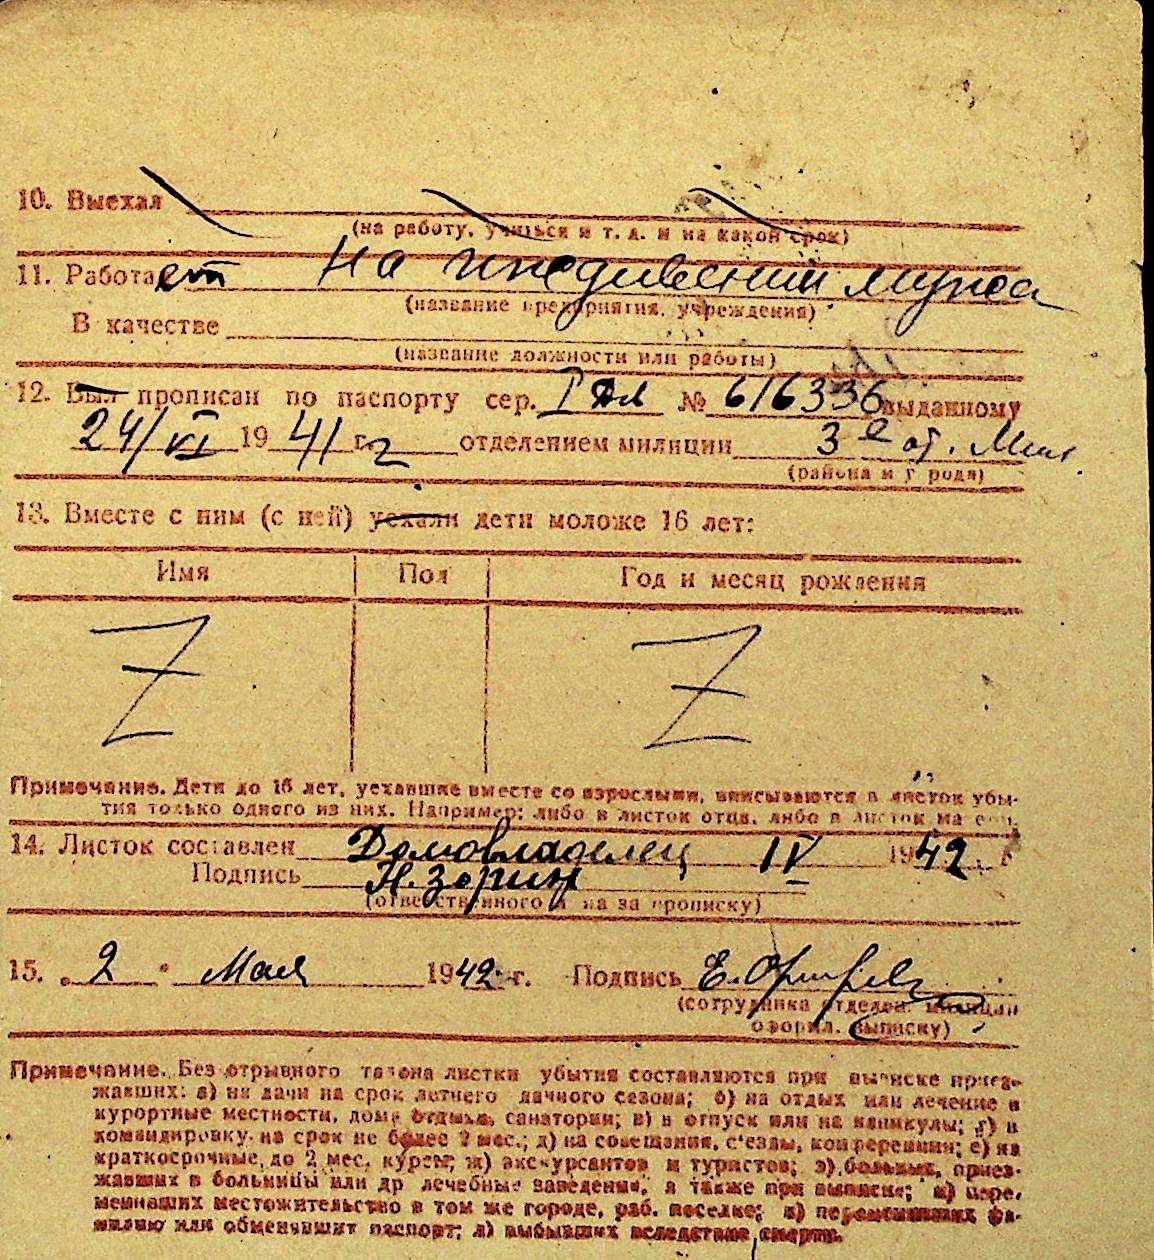 10. Выехал
(на работу, учиться и т. д. и на какой срок)
11. Работает На иждивении мужа
(название предприятия, учреждения)
В качестве
(название должности или работы)
12. Был прописан по паспорту сер. № 616336 выданному
24/VI 1941 г. отделением милиции 3е от. Мил.
(района и города)
13. Вместе с ним (с ней) уехали дети моложе 16 лет:
Имя Пол Год и месяц рождения
Z Z
Примечание. Дети до 16 лет, уехавшие вместе со взрослыми, вписываются в листок убы-
тия только одного из них. Например: либо в листок отца, либо в листок ма
14. Листок составлен Домовладелец IV 1942 г.
Подпись Н. Зорин
(ответственного за прописку)
15. „2" Мая 1942 г. Подпись Е.
(сотрудника отделен. милиции
оформл. выписку)
Примечание. Без отрывного талона листки убытия составляются при выписке приез-
жавших: а) на дачи на срок летнего дачного сезона; б) на отдых или лечение в
курортные местности, дома отдыха, санатории; в) в отпуск или на каникулы; г) в
командировку на срок не более 2 мес.; д) на совещания, съезды, конференции; е) на
краткосрочные, до 2 мес. курсы; ж) экскурсантов и туристов; з) больных, приез-
жавших в больницы или др лечебные заведения, а также при выписке; и) пере-
менивших местожительство в том же городе, раб. поселке; к) переменивших фа-
милию или обменявшит паспорт; л) выбывших вследствие смерти.